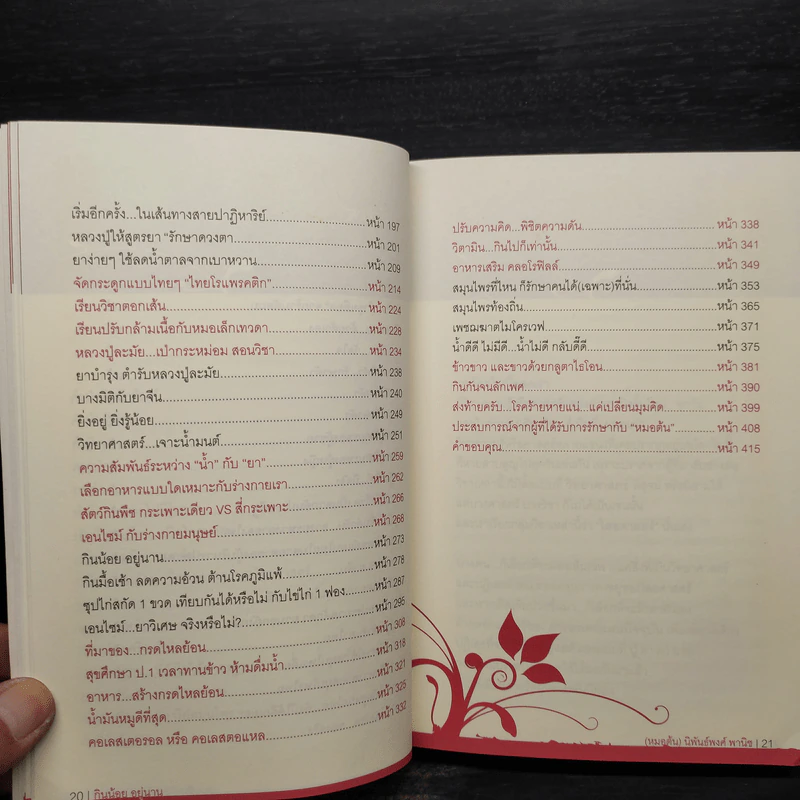 เริ่มอีกครั้ง...ในเส้นทางสายปาฏิหาริย์ หน้า 197
หลวงปู่ให้สูตรยา "รักษาดวงตา หน้า 201
ยาง่ายๆ ใช้ลดน้ำตาลจากเบาหวาน หน้า 209
จัดกระดูกแบบไทยๆ "ไทยโรแพรคติก" หน้า 214
เรียนวิชาตอกเส้น หน้า 224
เรียนปรับกล้ามเนื้อกับหมอเล็กเทวดา หน้า 228
หลวงปู่ละมัย...เป่ากระหม่อม สอนวิชา หน้า 234
ยาบำรุง ตำรับหลวงปู่ละมัย หน้า 238
บางมิติกับยาจีน หน้า 240
ยิ่งอยู่ ยิ่งรู้น้อย หน้า 249
วิทยาศาสตร์...เจาะน้ำมนต์ หน้า 251
ความสัมพันธ์ระหว่าง "น้ำ" กับ "ยา" หน้า 259
เลือกอาหารแบบใดเหมาะกับร่างกายเรา หน้า 262
สัตว์กินพืช กระเพาะเดียว VS สี่กระเพาะ หน้า 266
เอนไซม์ กับร่างกายมนุษย์ หน้า 268
กินน้อย อยู่นาน หน้า 273
กินมื้อเช้า ลดความอ้วน ต้านโรคภูมิแพ้ หน้า 278
ซุปไก่สกัด 1 ขวด เทียบกันได้หรือไม่ กับไข่ไก่ 1 ฟอง หน้า 287
เอนไซม์...ยาวิเศษ จริงหรือไม่? หน้า 295
ที่มาของ...กรดไหลย้อน หน้า 308
สุขศึกษา ป.1 เวลาทานข้าว ห้ามดื่มน้ำ หน้า 318
อาหาร...สร้างกรดไหลย้อน หน้า 321
น้ำมันหมูดีที่สุด หน้า 325
คอเลสเตอรอล หรือ คอเลสตอแหล หน้า 332
20 | กินน้อย อยู่นาน
ปรับความคิด...พิชิตความดัน หน้า 338
วิตามิน...กินไปก็เท่านั้น หน้า 341
อาหารเสริม คลอโรฟิลล์ หน้า 349
สมุนไพรที่ไหน ก็รักษาคนได้(เฉพาะ)ที่นั่น หน้า 353
สมุนไพรท้องถิ่น หน้า 365
เพชฌฆาตไมโครเวฟ หน้า 371
น้ำดีดี ไม่มีดี...น้ำไม่ดี กลับดี๊ดี หน้า 375
ข้าวขาว และขาวด้วยกลูตาไธโอน หน้า 381
กินกันจนลักเพศ หน้า 390
ส่งท้ายครับ...โรคร้ายหายแน่...แค่เปลี่ยนมุมคิด หน้า 399
ประสบการณ์จากผู้ที่ได้รับการรักษากับ "หมอตัน" หน้า 408
คำขอบคุณ หน้า 415
(หมอตัน) นิพันธ์พงศ์ พานิช | 21